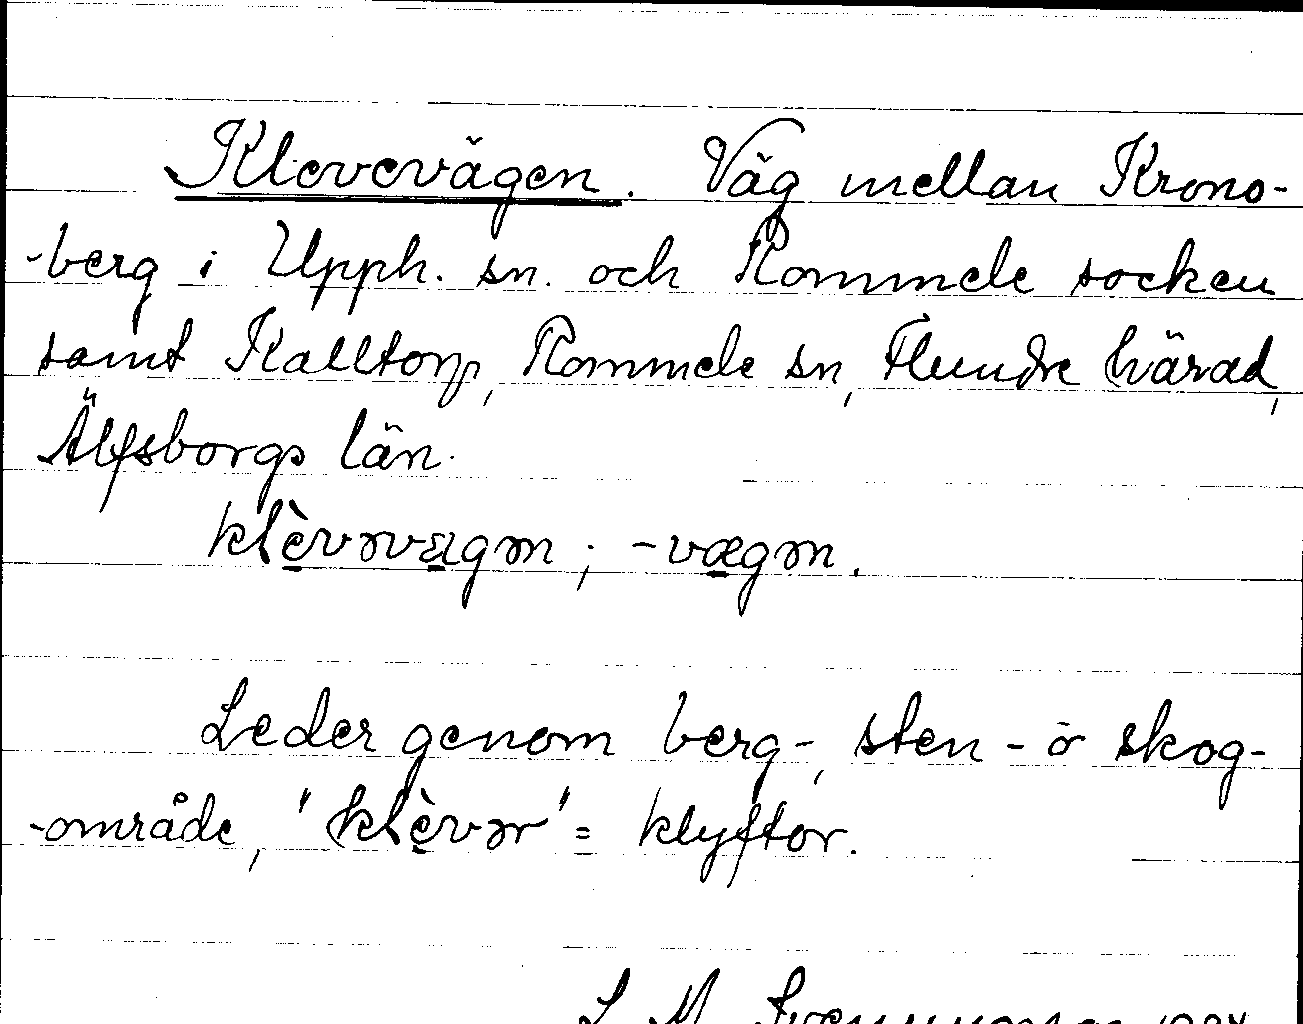 Klevevägen. Väg mellan Krono-
-berg i Upph. sn. och Rommele socken
samt Kalltorp, Rommele sn, Flundre härad,
Älfsborgs län.
klèvəvægən ; -vægən.
Leder genom berg-, sten- o skog-
-område, "klèvər" = klyftor.
L M Svenungsson